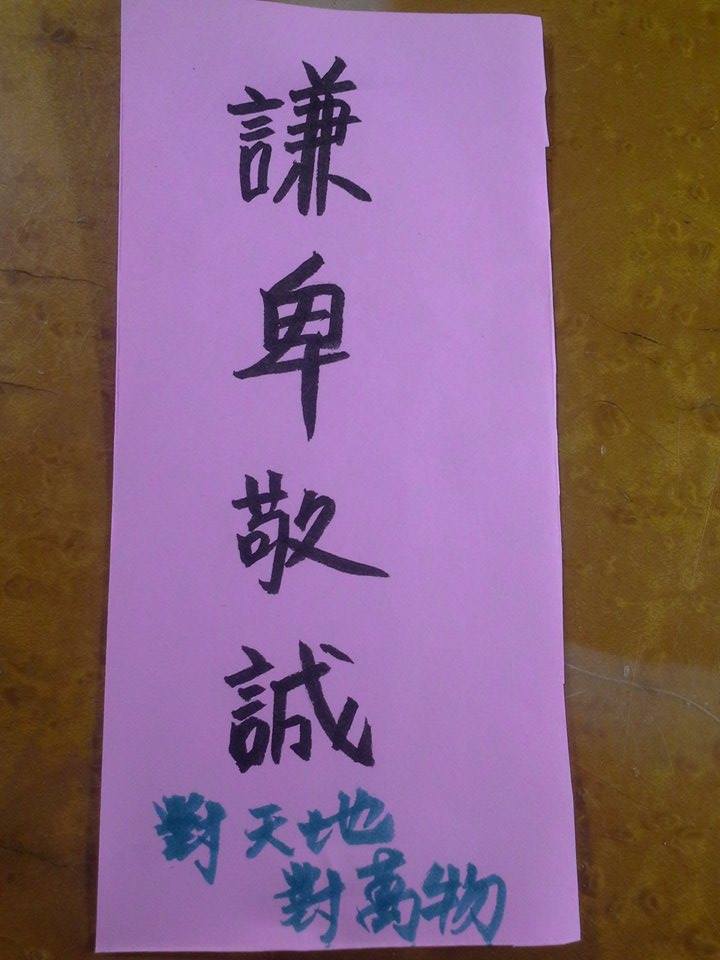 謙卑敬誠
對天地
對萬物